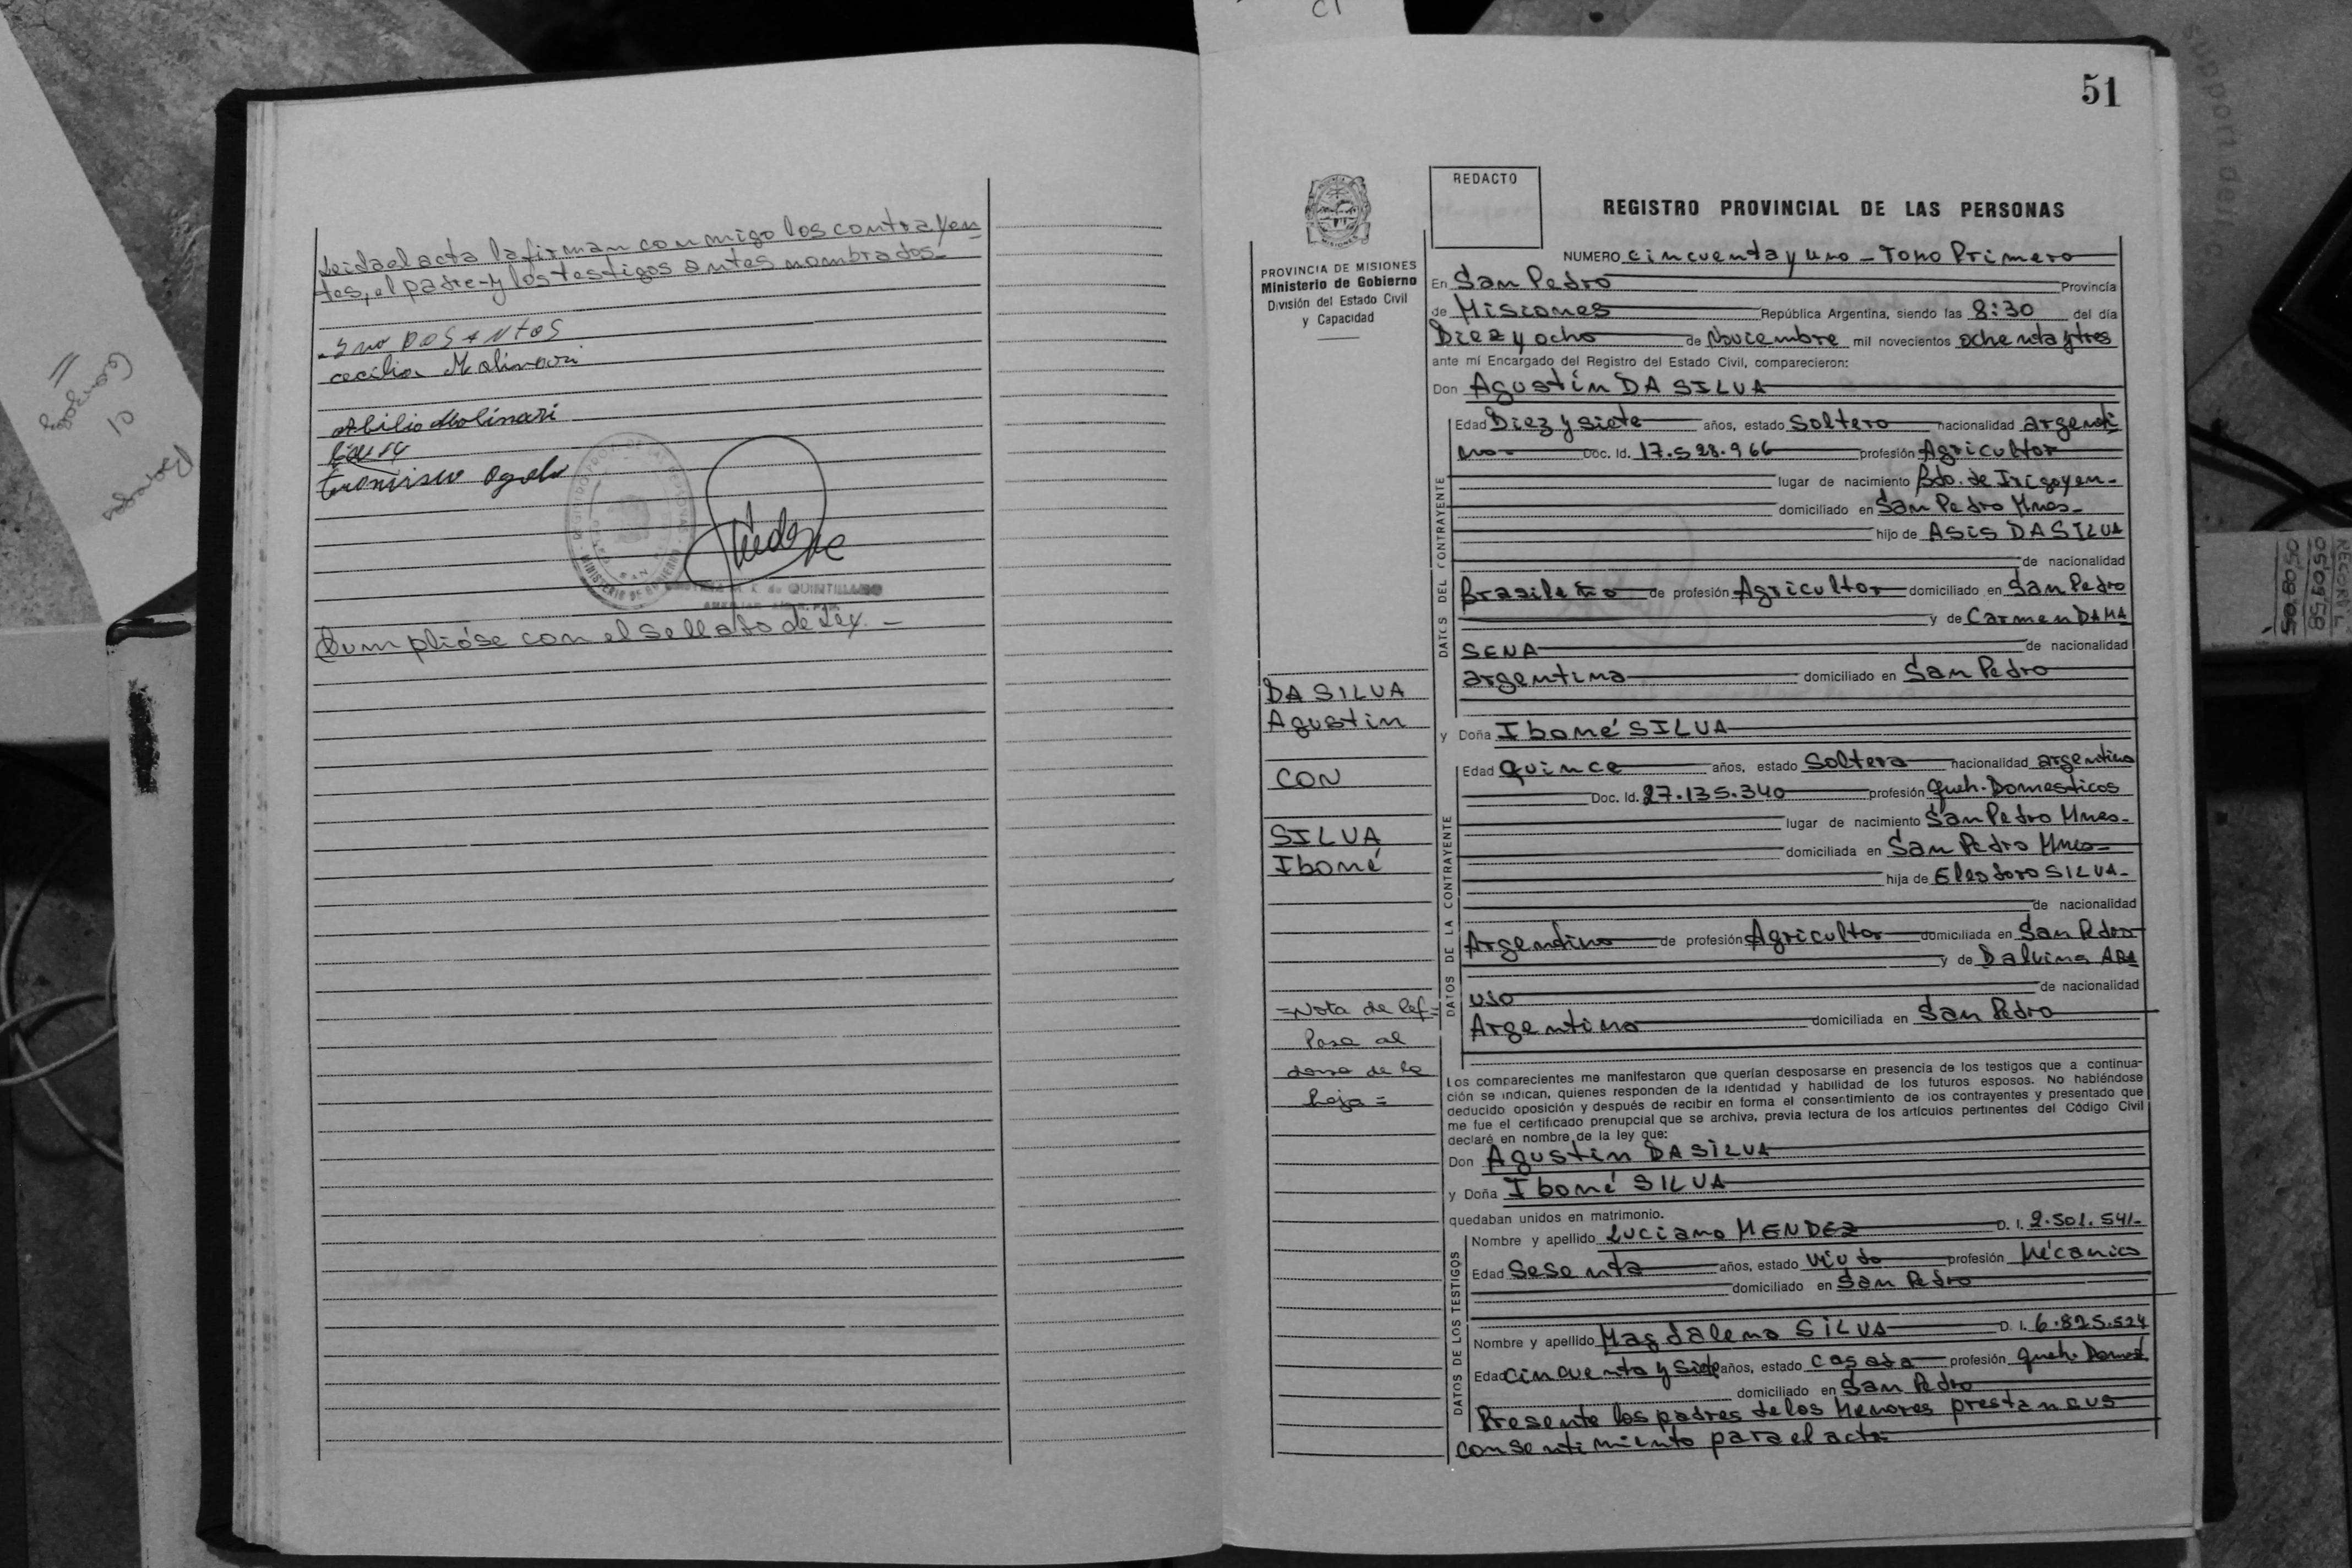 Leida el acta la firman conmigo los contrayen
tes, el padre y los testigos antes nombrados-
DOS ANTOS
cecilia Molinari
Abilio Molinari
Cumplióse con el sellado de Ley. -
51
REDACTO
REGISTRO PROVINCIAL DE LAS PERSONAS
PROVINCIA DE MISIONES
Ministerio de Gobierno
División del Estado Civil
y Capacidad
NUMERO cincuenta y uno - Tomo Primero
En San Pedro Provincia
de Misiones República Argentina, siendo las 8:30 del día
Diez y ocho de Noviembre mil novecientos ochenta y tres
ante mí Encargado del Registro del Estado Civil, comparecieron:
Don Agustín DA SILVA
DATOS DEL CONTRAYENTE
Edad Diez y siete años, estado Soltero nacionalidad argenti
no- Doc. Id. 17.528.966 profesión Agricultor
lugar de nacimiento Bdo. de Irigoyen-
domiciliado en San Pedro Mnes-
hijo de Asis DA SILVA
de nacionalidad
Brasileño de profesión Agricultor domiciliado en San Pedro
y de Carmen DAMA
SENA de nacionalidad
argentina domiciliado en San Pedro
DA SILVA
Agustín
CON
SILVA
Iboné
=Nota de Ref=
Pasa al
dorso de la
hoja=
y Doña Iboné SILVA
DATOS DE LA CONTRAYENTE
Edad Quince años, estado Soltera nacionalidad argentina
Doc. Id. 27.135.340 profesión Queh. Domesticos
lugar de nacimiento San Pedro Mnes-
domiciliada en San Pedro Mnes-
hija de Eleodoro SILVA-
de nacionalidad
Argentino de profesión Agricultor domiciliada en San Pedro
y de Dalvina ARA
UJO de nacionalidad
Argentina domiciliada en San Pedro
Los comparecientes me manifestaron que querían desposarse en presencia de los testigos que a continua-
ción se indican, quienes responden de la identidad y habilidad de los futuros esposos. No habiéndose
deducido oposición y después de recibir en forma el consentimiento de los contrayentes y presentado que
me fue el certificado prenupcial que se archiva, previa lectura de los artículos pertinentes del Código Civil
declaré en nombre de la ley que:
Don Agustín DA SILVA
y Doña Iboné SILVA
quedaban unidos en matrimonio.
DATOS DE LOS TESTIGOS
Nombre y apellido Luciano MENDEZ D. I. 2.501.541-
Edad Sesenta años, estado Viudo profesión Mécanico
domiciliado en San Pedro
Nombre y apellido Magdalena SILVA D. I. 6.825.524
Edad cincuenta y siete años, estado casada profesión Queh. Domest.
domiciliado en San Pedro
Presente los padres de los Menores prestan sus
consentimiento para el acta-